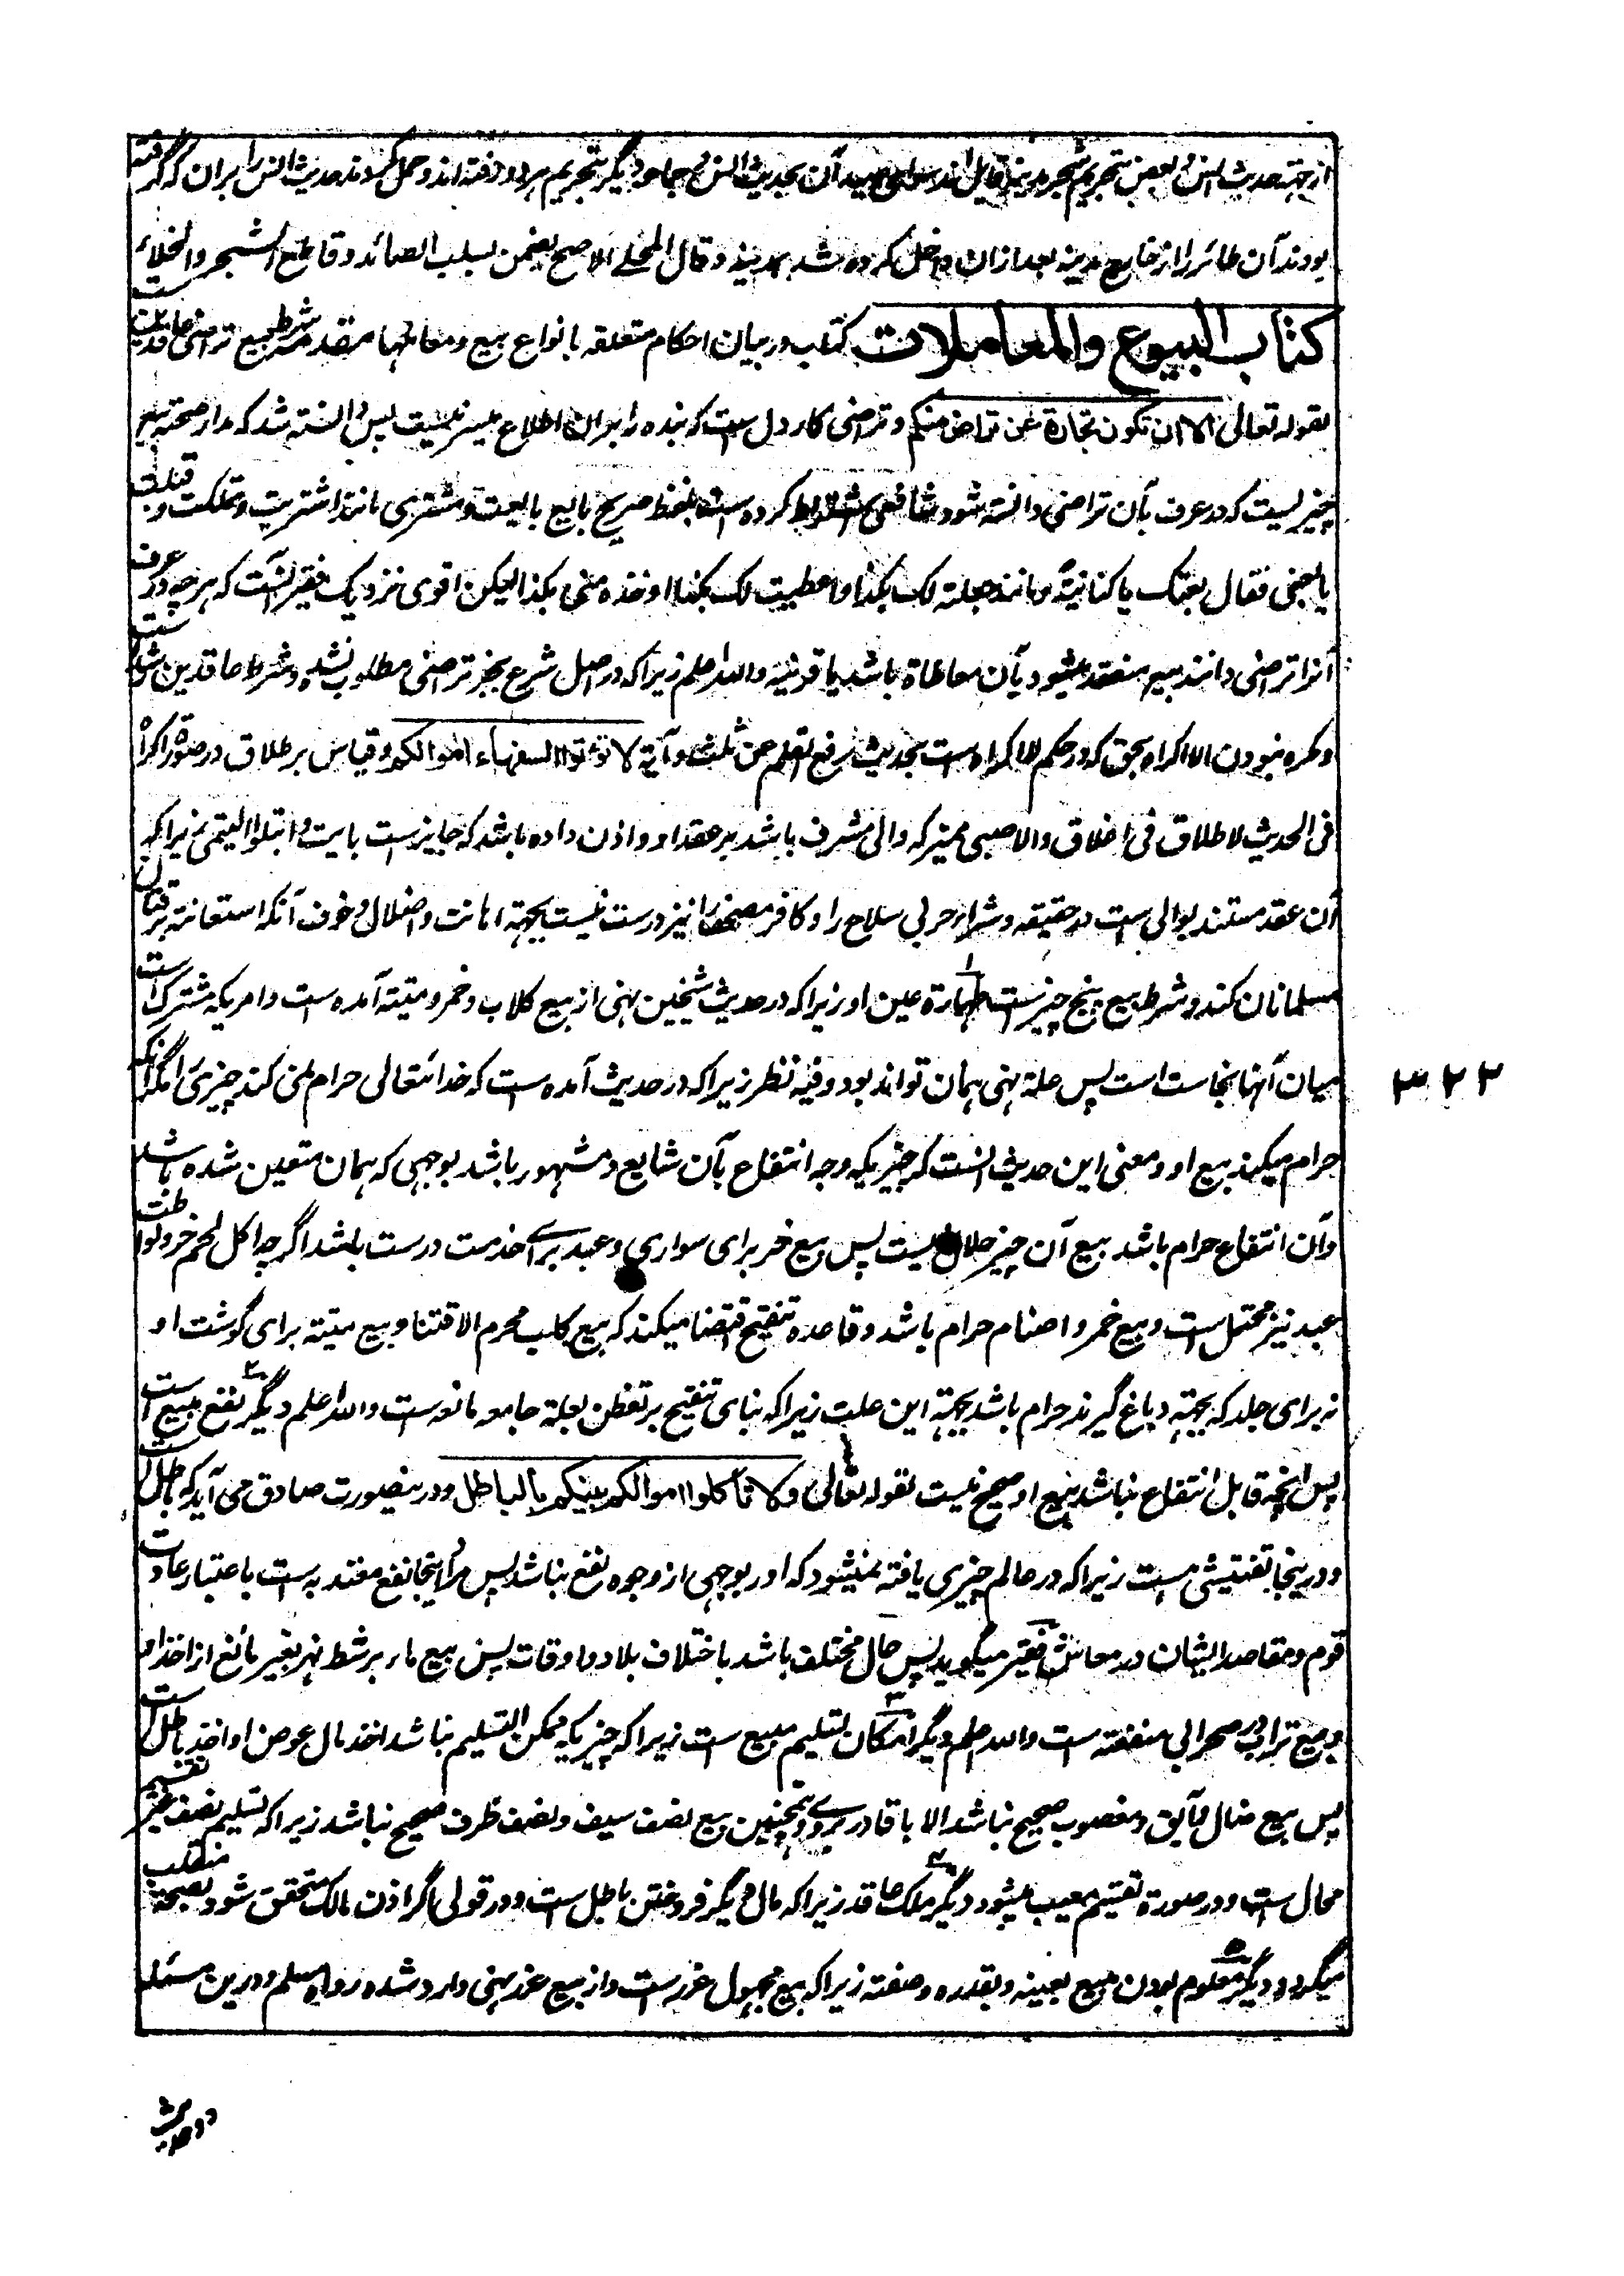 از جهته حدیث انس و بعض بتحریم شجر مدینه قایل اند سوای صید آن بحدیث انس و جماعه دیگر بتحریم هر دو رفته اند و حمل کردند حدیث انس را بران که گرفته
بودند آن طائر را از خارج مدینه بعد ازان داخل کرده شد بمدینه و قال المحلی الاصح یضمن بسلب الصائد و قاطع الشجر والخلاء
کتاب البیوع والمعاملات کتاب در بیان احکام متعلقه بانواع بیع و معاملها مقدمه شرط بیع تراضی عاقدین ست
لقوله تعالی الا ان تکون تجارة عن تراض منکم و تراضی کار دل ست که بنده را بران اطلاع میسر نیست پس دانسته شد که مدار صحته بیع
چیزیست که در عرف بآن تراضی دانسته شود شافعی اشتراط کرده است بلفظ صریح بایع بایعت و مشتری مانند اشتریت و تملکت و قبلت
یا بعنی فقال بعتک یا کنایة مانند جعلته لک بکذا و اعطیت لک بکذا او خذه منی بکذا لیکن اقوی نزدیک فقیر آنست که هر چه در عرف
آنرا تراضی دانند بیع منعقد میشود بآن معاطاة باشد یا قرینه والله اعلم زیرا که در اصل شرع بجز تراضی مطلوب نشده و شرط عاقدین رشد ست
و مکره نبودن الا اکراه بحق که در حکم لا اکراه ست بحدیث رفع القلم عن ثلث و آیة لا تؤتوا السفهاء اموالکم و قیاس بر طلاق در صورة اکراه
فی الحدیث لا طلاق فی اغلاق والا صبی ممیز که والی مشرف باشد بر عقد او و اذن داده باشد که جایز ست بایت و ابتلوا الیتمی زیرا که
آن عقد مستند بوالی ست در حقیقه و شراء حربی سلاح را و کافر مصحف را نیز درست نیست بجهته اهانت و اضلال و خوف آنکه استعانة بر قتال
مسلمانان کند و شرط بیع پنج چیز ست ۱ طهارة عین او زیرا که در حدیث شیخین نهی از بیع کلاب و خمر و میتة آمده ست و امریکه مشترک است
میان آنها نجاست است پس علة نهی همان تواند بود و فیه نظر زیرا که در حدیث آمده ست که خدا تعالی حرام نمی کند چیزی را مگر آنکه
حرام میکند بیع او و معنی این حدیث آنست که چیزیکه وجه انتفاع بآن شایع و مشهور باشد بوجهی که همان متعین شده باشد
و آن انتفاع حرام باشد بیع آن چیز حلال نیست پس بیع خر برای سواری و عبد برای خدمت درست باشد اگر چه اکل لحم خر و لواطت
عبد نیز محتمل ست و بیع خمر و اصنام حرام باشد و قاعده تنقیح اقتضا میکند که بیع کلب محرم الاقتنا و بیع میتة برای گوشت او
نه برای جلد که بجهته دباغ گیرند حرام باشد بجهته این علت زیرا که بنای تنقیح بر تفطن بعلة جامعه مانعه ست والله اعلم دیگر ۲ نفع مبیع ست
پس آنچه قابل انتفاع نباشد بیع او صحیح نیست لقوله تعالی ولا تأکلوا اموالکم بینکم بالباطل و درینصورت صادق می آید که باطل ست
و درینجا تفتیشی هست زیرا که در عالم چیزی یافته نمیشود که او را بوجهی از وجوه نفع نباشد پس مراد اینجا نفع معتد به ست باعتبار عادت
قوم و مقاصد ایشان در معاش فقیر میگوید پس حال مختلف باشد باختلاف بلاد و اوقات پس بیع ماء بر شط نهر بغیر مانع از اخذ او
و بیع تراب در صحرا بی منفعته ست والله اعلم دیگر ۳ امکان تسلیم مبیع ست زیرا که چیزیکه ممکن التسلیم نباشد اخذ مال عوض او اخذ باطل ست
پس بیع ضال و آبق و مغصوب صحیح نباشد الا با قادر بروی و همچنین بیع نصف سیف و نصف ظرف صحیح نباشد زیرا که تسلیم نصف بغیر تقسیم
محال ست و در صورة تقسیم معیب میشود دیگر ۴ ملک عاقد زیرا که مال دیگر فروختن باطل ست و در قولی اگر اذن مالک متحقق شود بصحة منقلب
میگردد و دیگر ۵ معلوم بودن مبیع بعینه و بقدره و صفته زیرا که بیع مجهول غرر ست و از بیع غرر نهی وارد شده رواه مسلم و درین مسئله
۳۲۲